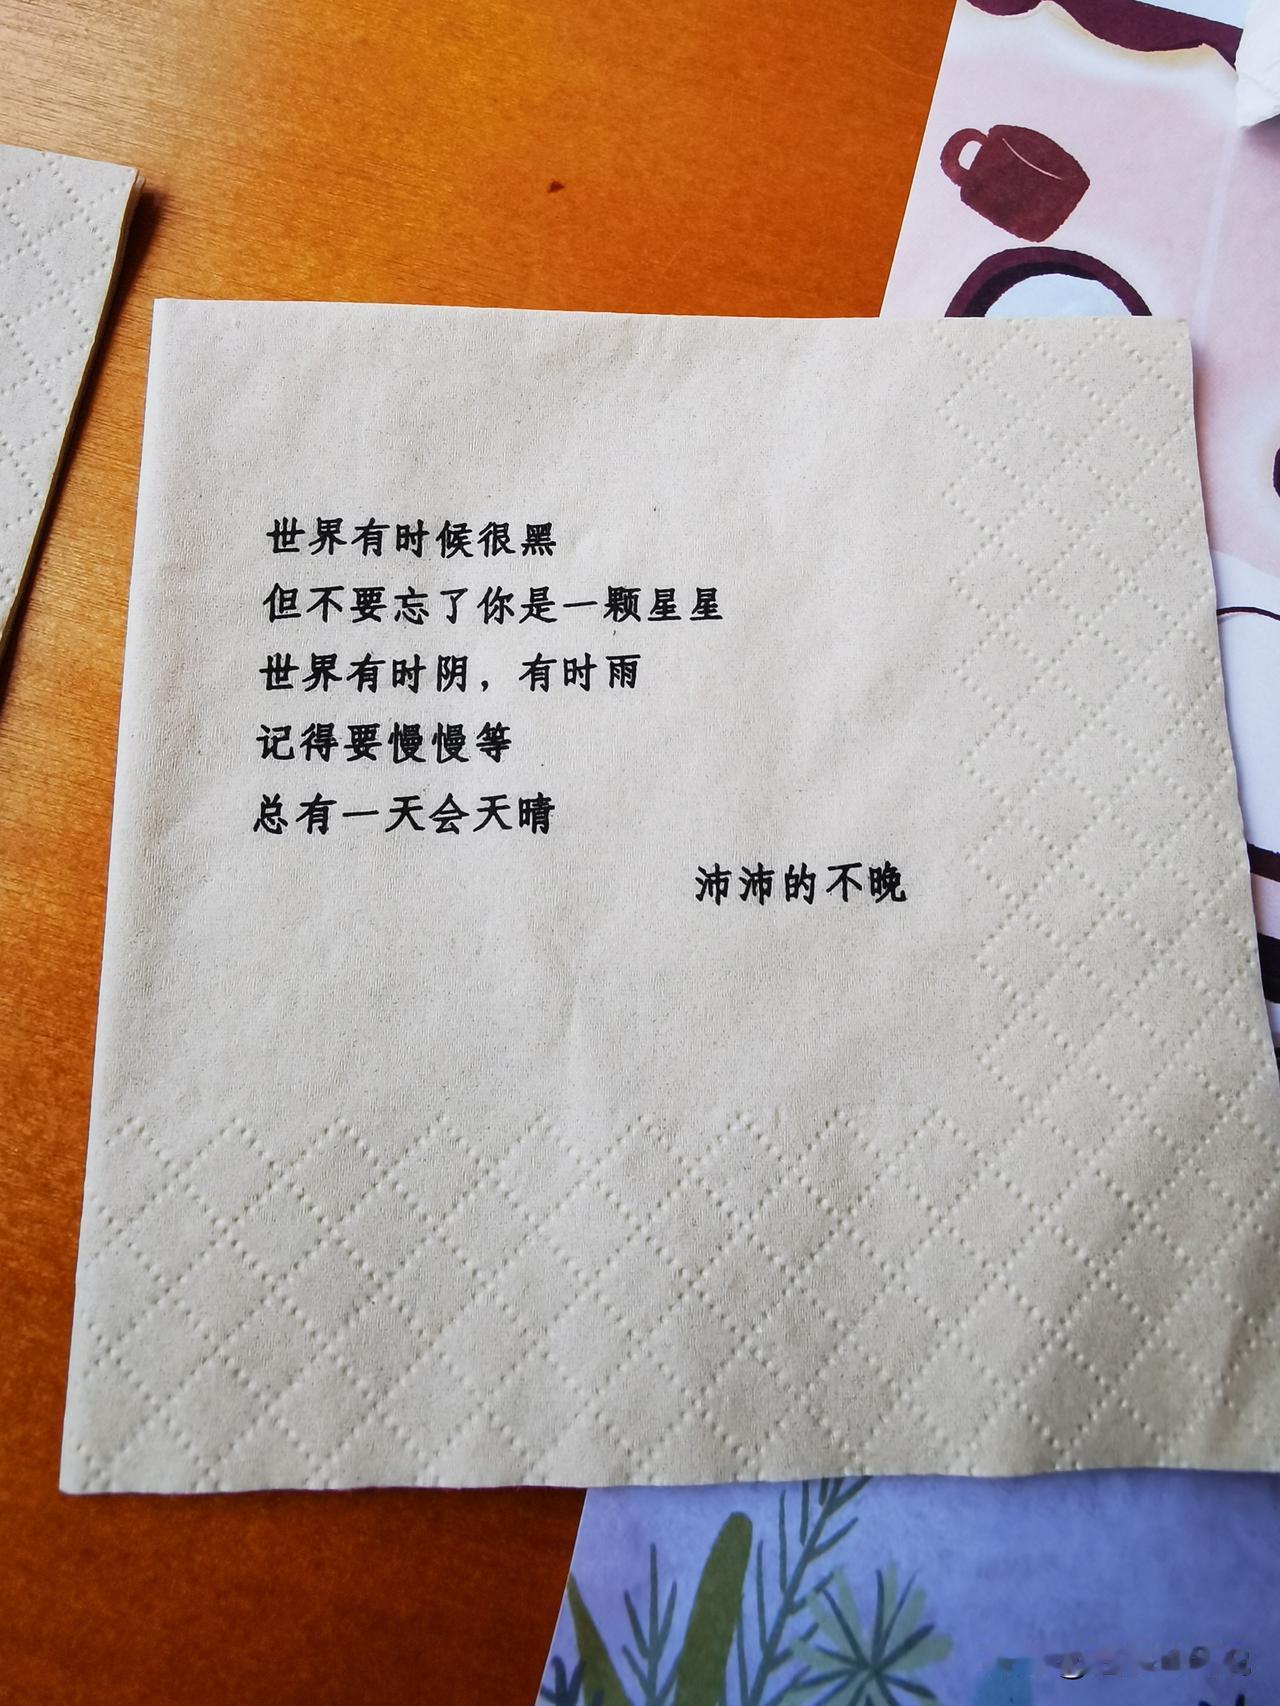 世界有时候很黑
但不要忘了你是一颗星星
世界有时阴，有时雨
记得要慢慢等
总有一天会天晴
沛沛的不晚